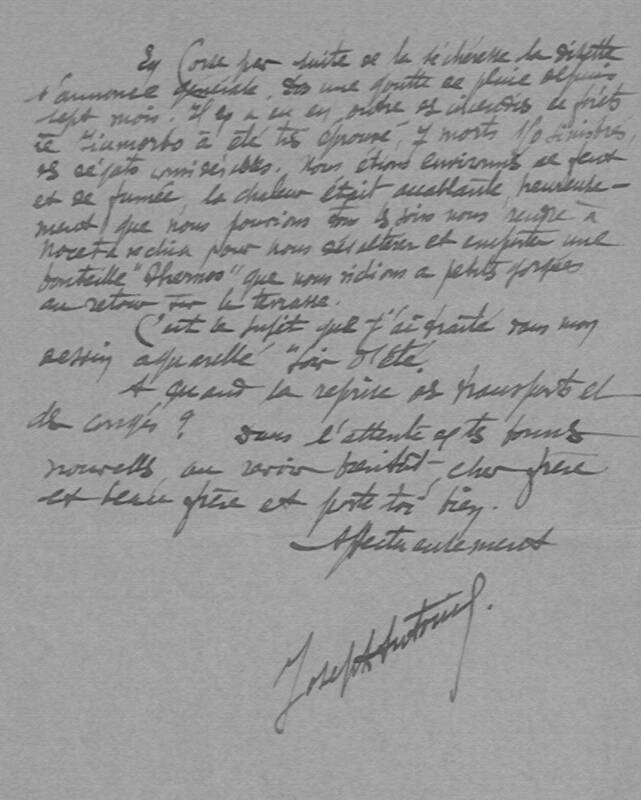 En Corse par suite de la sécheresse la disette
s'annonce générale. Pas une goutte de pluie depuis
sept mois. Il y a eu en outre des incendies de forêts
le Fiumorbo à été très éprouvé, 7 morts 110 sinistrés,
des dégats considérables. Nous étions environnés de feux
et de fumée, la chaleur était accablante, heureuse-
ment que nous pouvions tous les soirs nous rendre à
pour nous désaltérer et emporter une
bouteille "Thermos" que nous vidions a petites gorgées
au retour sur la terrasse.
C'est le sujet que j'ai traité dans mon
dessin aquarellé "Soir d'Été.
A quand la reprise des transports et
des congés ? Dans l'attente de tes bonnes
nouvelles au revoir bientôt, cher frère
et beau frère et porte toi bien.
Affectueusement
Joseph Antoine